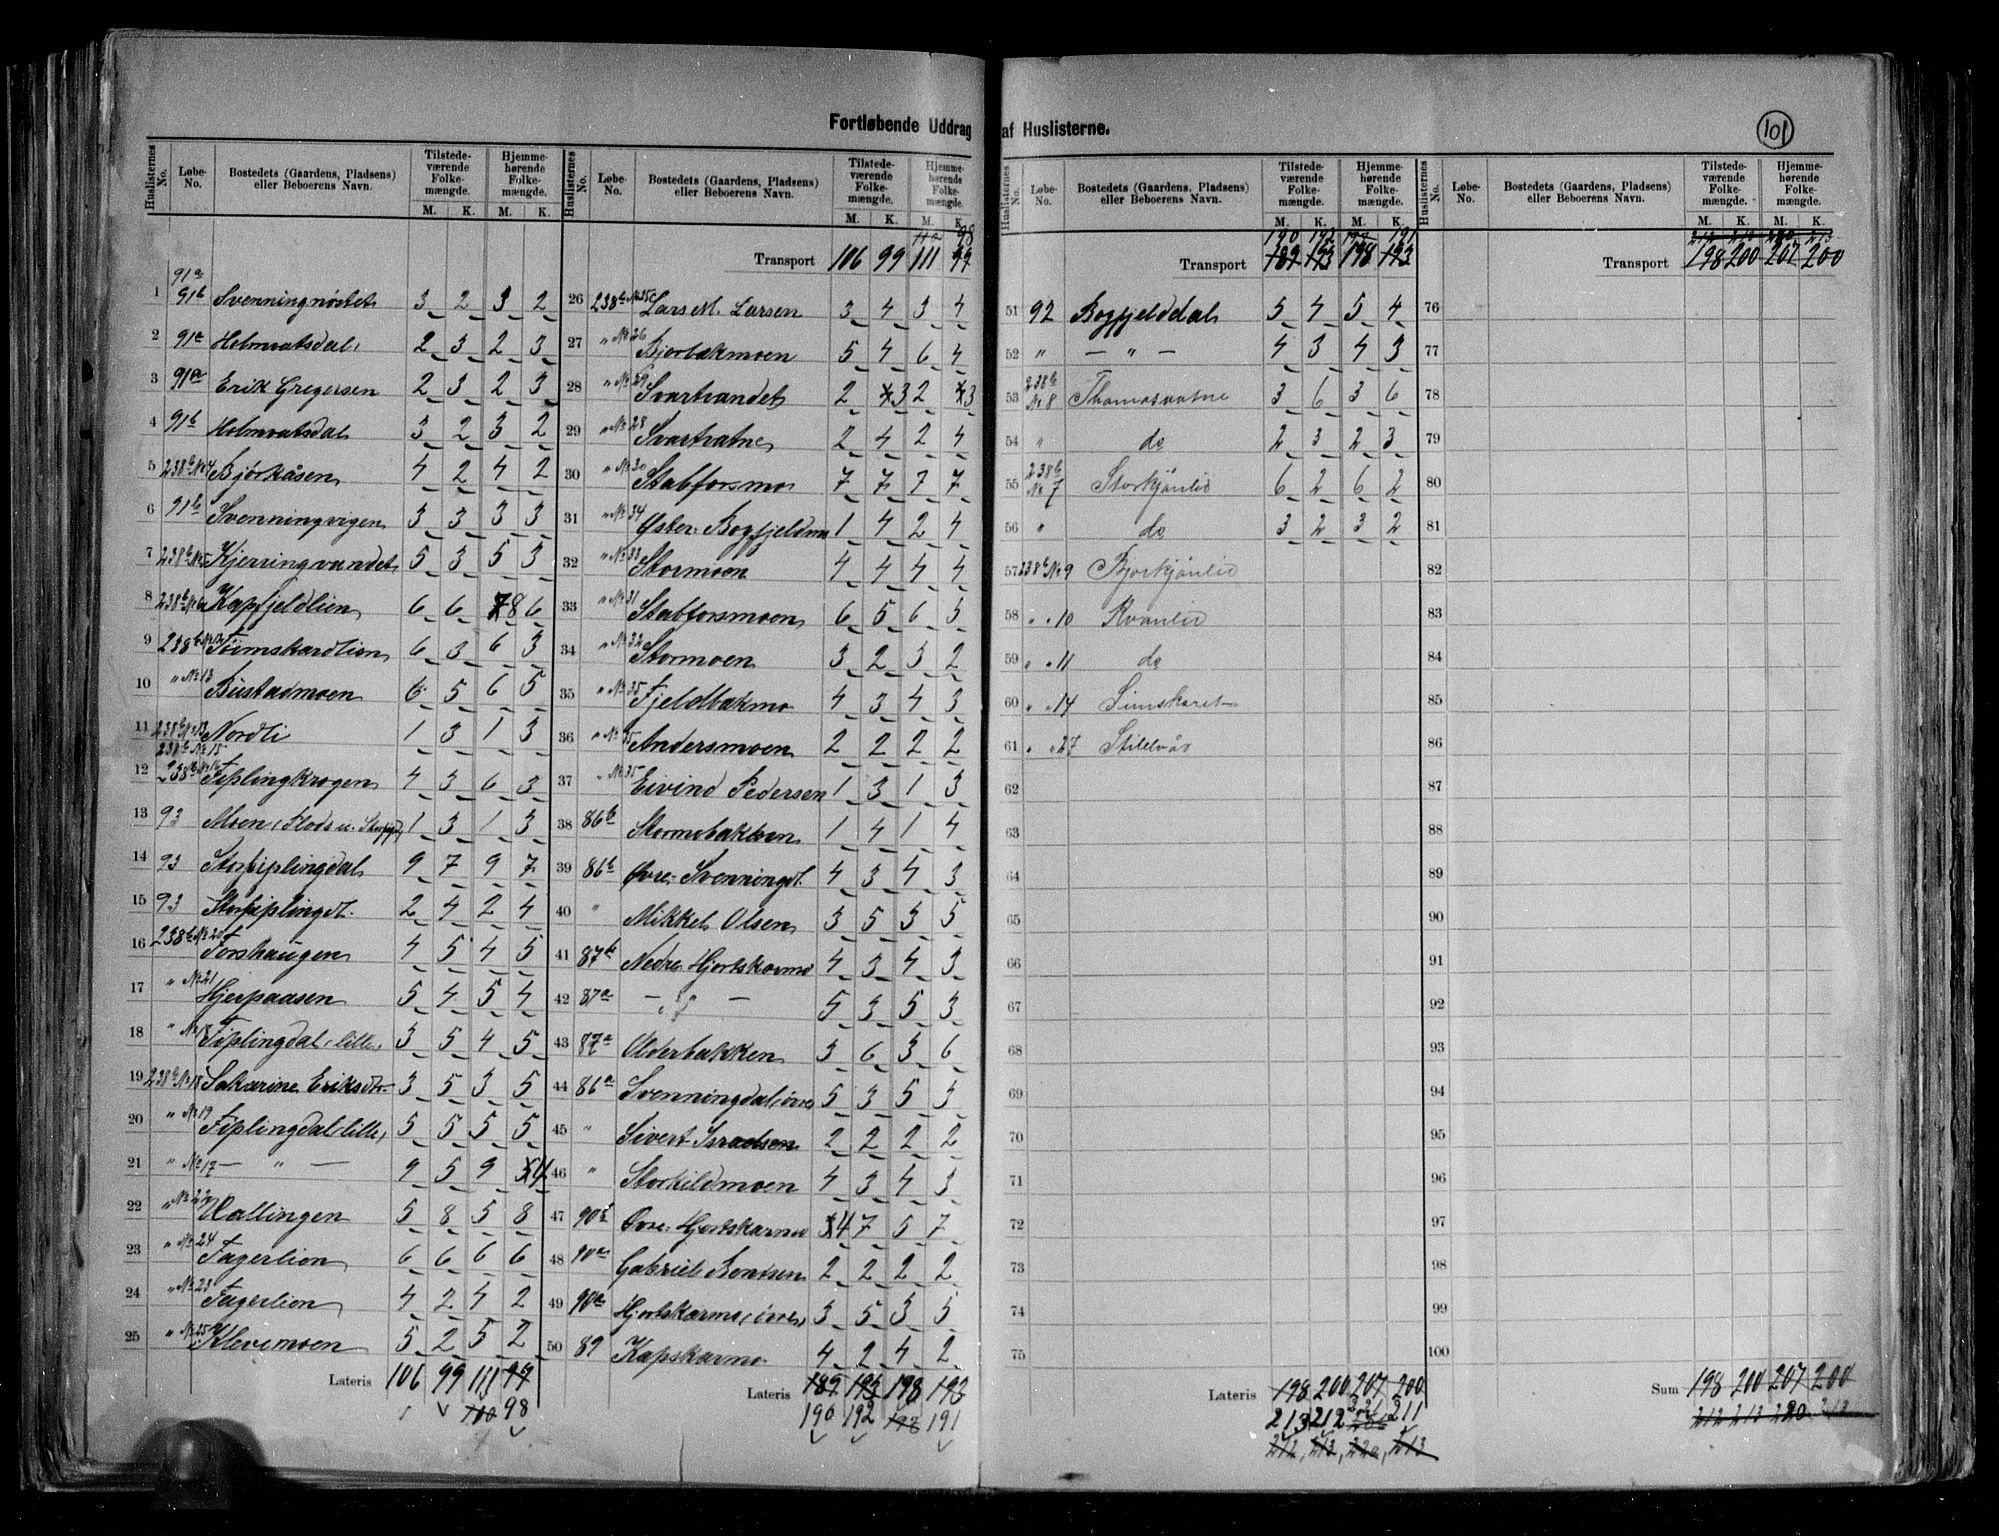 Fortløbende Uddrag af Huslisterne.
101
Huslisternes No. Løbe-No. Bostedets (Gaardens, Pladsens) eller Beboerens Navn. Tilstedeværende Folkemængde. M. K. Hjemmehørende Folkemængde. M. K.
91a
1 91b Svenningnöstet 3 2 3 2
2 91a Holmvatsdal 2 3 2 3
3 91a Erik Gregersen 2 3 2 3
4 91b Holmvatsdal 3 2 3 2
5 238b No 4 Bjørkåsen 4 2 4 2
6 91b Svenningvigen 3 3 3 3
7 238b No 5 Kjerringvandet 5 3 5 3
8 238b No 6 Kapfjeldlien 6 6 8 6
9 238b No 12 Simskardlien 6 3 6 3
10 " No 13 Bustadmoen 6 5 6 5
11 238b Nordli 1 3 1 3
238b No 15
12 238b No 16 Fiplingkrogen 4 3 6 3
13 93 Moen 1 3 1 3
14 93 Storfiplingdal 9 7 9 7
15 93 Storfiplingd. 2 4 2 4
16 238b No 20 Forshaugen 4 5 4 5
17 " No 21 Hjerpaasen 5 4 5 4
18 " Fiplingdal, lille, 3 5 4 5
19 238b No 18 Sakarine Eriksdtr 3 5 3 5
20 " No 19 Fiplingdal, lille, 5 5 5 5
21 " No 17 — " — 9 5 9 4
22 " No 22 Hallingen 5 8 5 8
23 " No 24 Fagerlien 6 6 6 6
24 " No 23 Fagerlien 4 2 4 2
25 " No 25 Klevemoen 5 2 5 2
Lateris 106 99 111 99
110 98
110 98
Transport 106 99 111 99
26 238b No 25 Lars M. Larsen 3 4 3 4
27 " No 26 Bjortbakmoen 5 4 6 4
28 " No 29 Svartvandet 2 3 2 3
29 " No 28 Svartvatne 2 4 2 4
30 " No 30 Stabforsmo 7 7 7 7
31 " No 34 Yster-Bogfjeldmo 1 4 2 4
32 " No 33 Stormoen 4 4 4 4
33 " No 31 Stabforsmoen 6 5 6 5
34 " No 32 Stormoen 3 2 3 2
35 " No 35 Fjeldbakmo 4 3 4 3
36 " No 35 Andersmoen 2 2 2 2
37 " No 35 Eivind Pedersen 1 3 1 3
38 86b Stormobakken 1 4 1 4
39 86b Øvre-Svenningd. 4 3 4 3
40 " Mikkel Olsen 3 5 3 5
41 87b Nedre Hjortskarmo 4 3 4 3
42 87a — " — 5 3 5 3
43 87a Olderbakken 3 6 3 6
44 86a Svenningdal, övre 5 3 5 3
45 " Sivert Israelsen 2 2 2 2
46 " Storkildmoen 4 3 4 3
47 90b Øvre-Hjortskarmo 4 7 5 7
48 90a Gabriel Bentsen 2 2 2 2
49 90a Hjortskarmo, övre, 3 5 3 5
50 89 Kapskarmo 4 2 4 2
Lateris 189 193 198 193
190 192 198 191
190 192 197 191
Transport 189 193 198 193
51 92 Bogfjelddal 5 4 5 4
52 " — " — 4 3 4 3
53 238b No 8 Thomasvatne 3 6 3 6
54 " do 2 3 2 3
55 238b No 7 Storkjönlid 6 2 6 2
56 " do 3 2 3 2
57 238b No 9 Bjorkjönlid
58 " " 10 Kvanlid
59 " " 11 do
60 " " 14 Simskaret
61 " " 27 Stillelvås
62
63
64
65
66
67
68
69
70
71
72
73
74
75
Lateris 198 200 207 200
213 212 211
212, 213, 220, 213
212 213 220 213
Transport 198 200 207 200
76
77
78
79
80
81
82
83
84
85
86
87
88
89
90
91
92
93
94
95
96
97
98
99
100
Sum 198 200 207 200
212 213 220 213